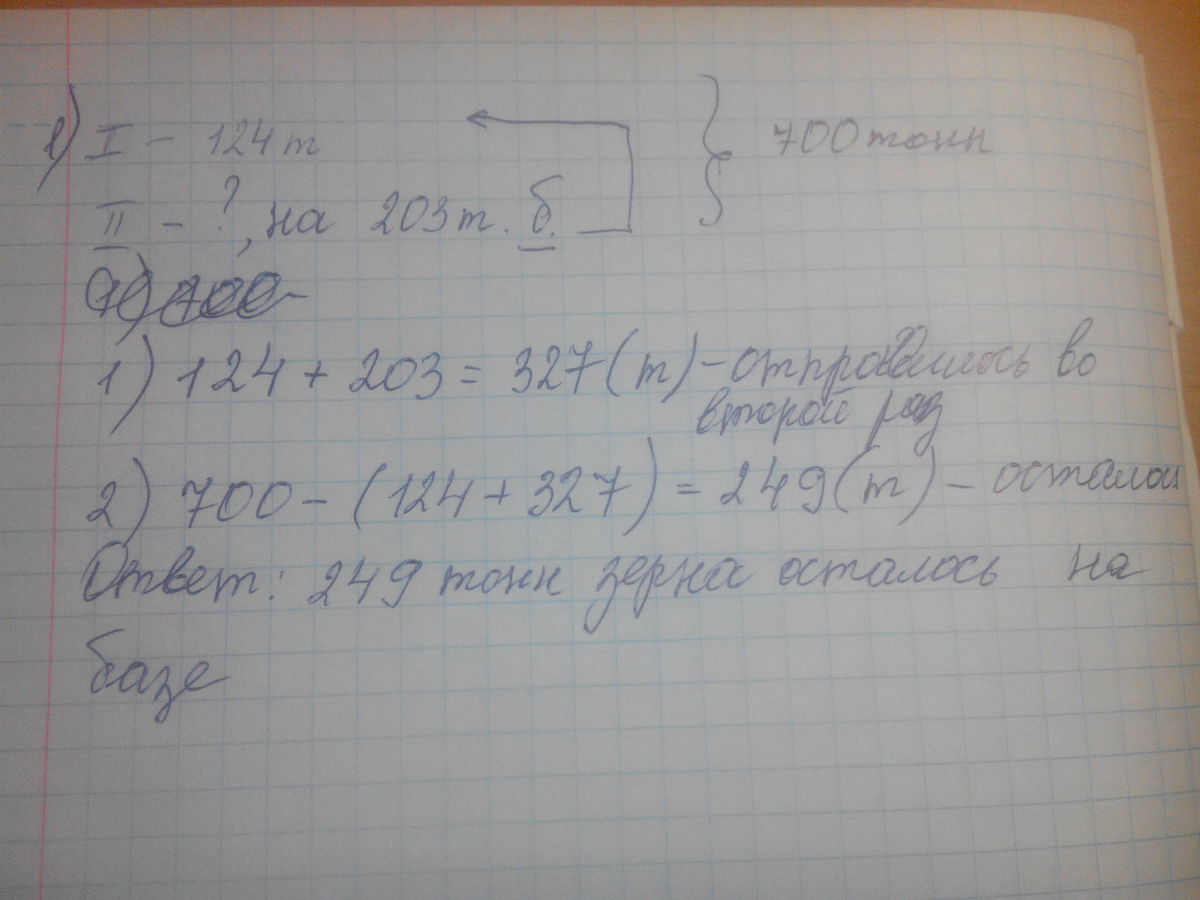 1) I - 124 т
700 тонн
II - ?, на 203 т. б.
1) 124 + 203 = 327 (т) - отправилось во
второй раз
2) 700 - (124 + 327) = 249 (т) - осталось
Ответ: 249 тонн зерна осталось на
базе